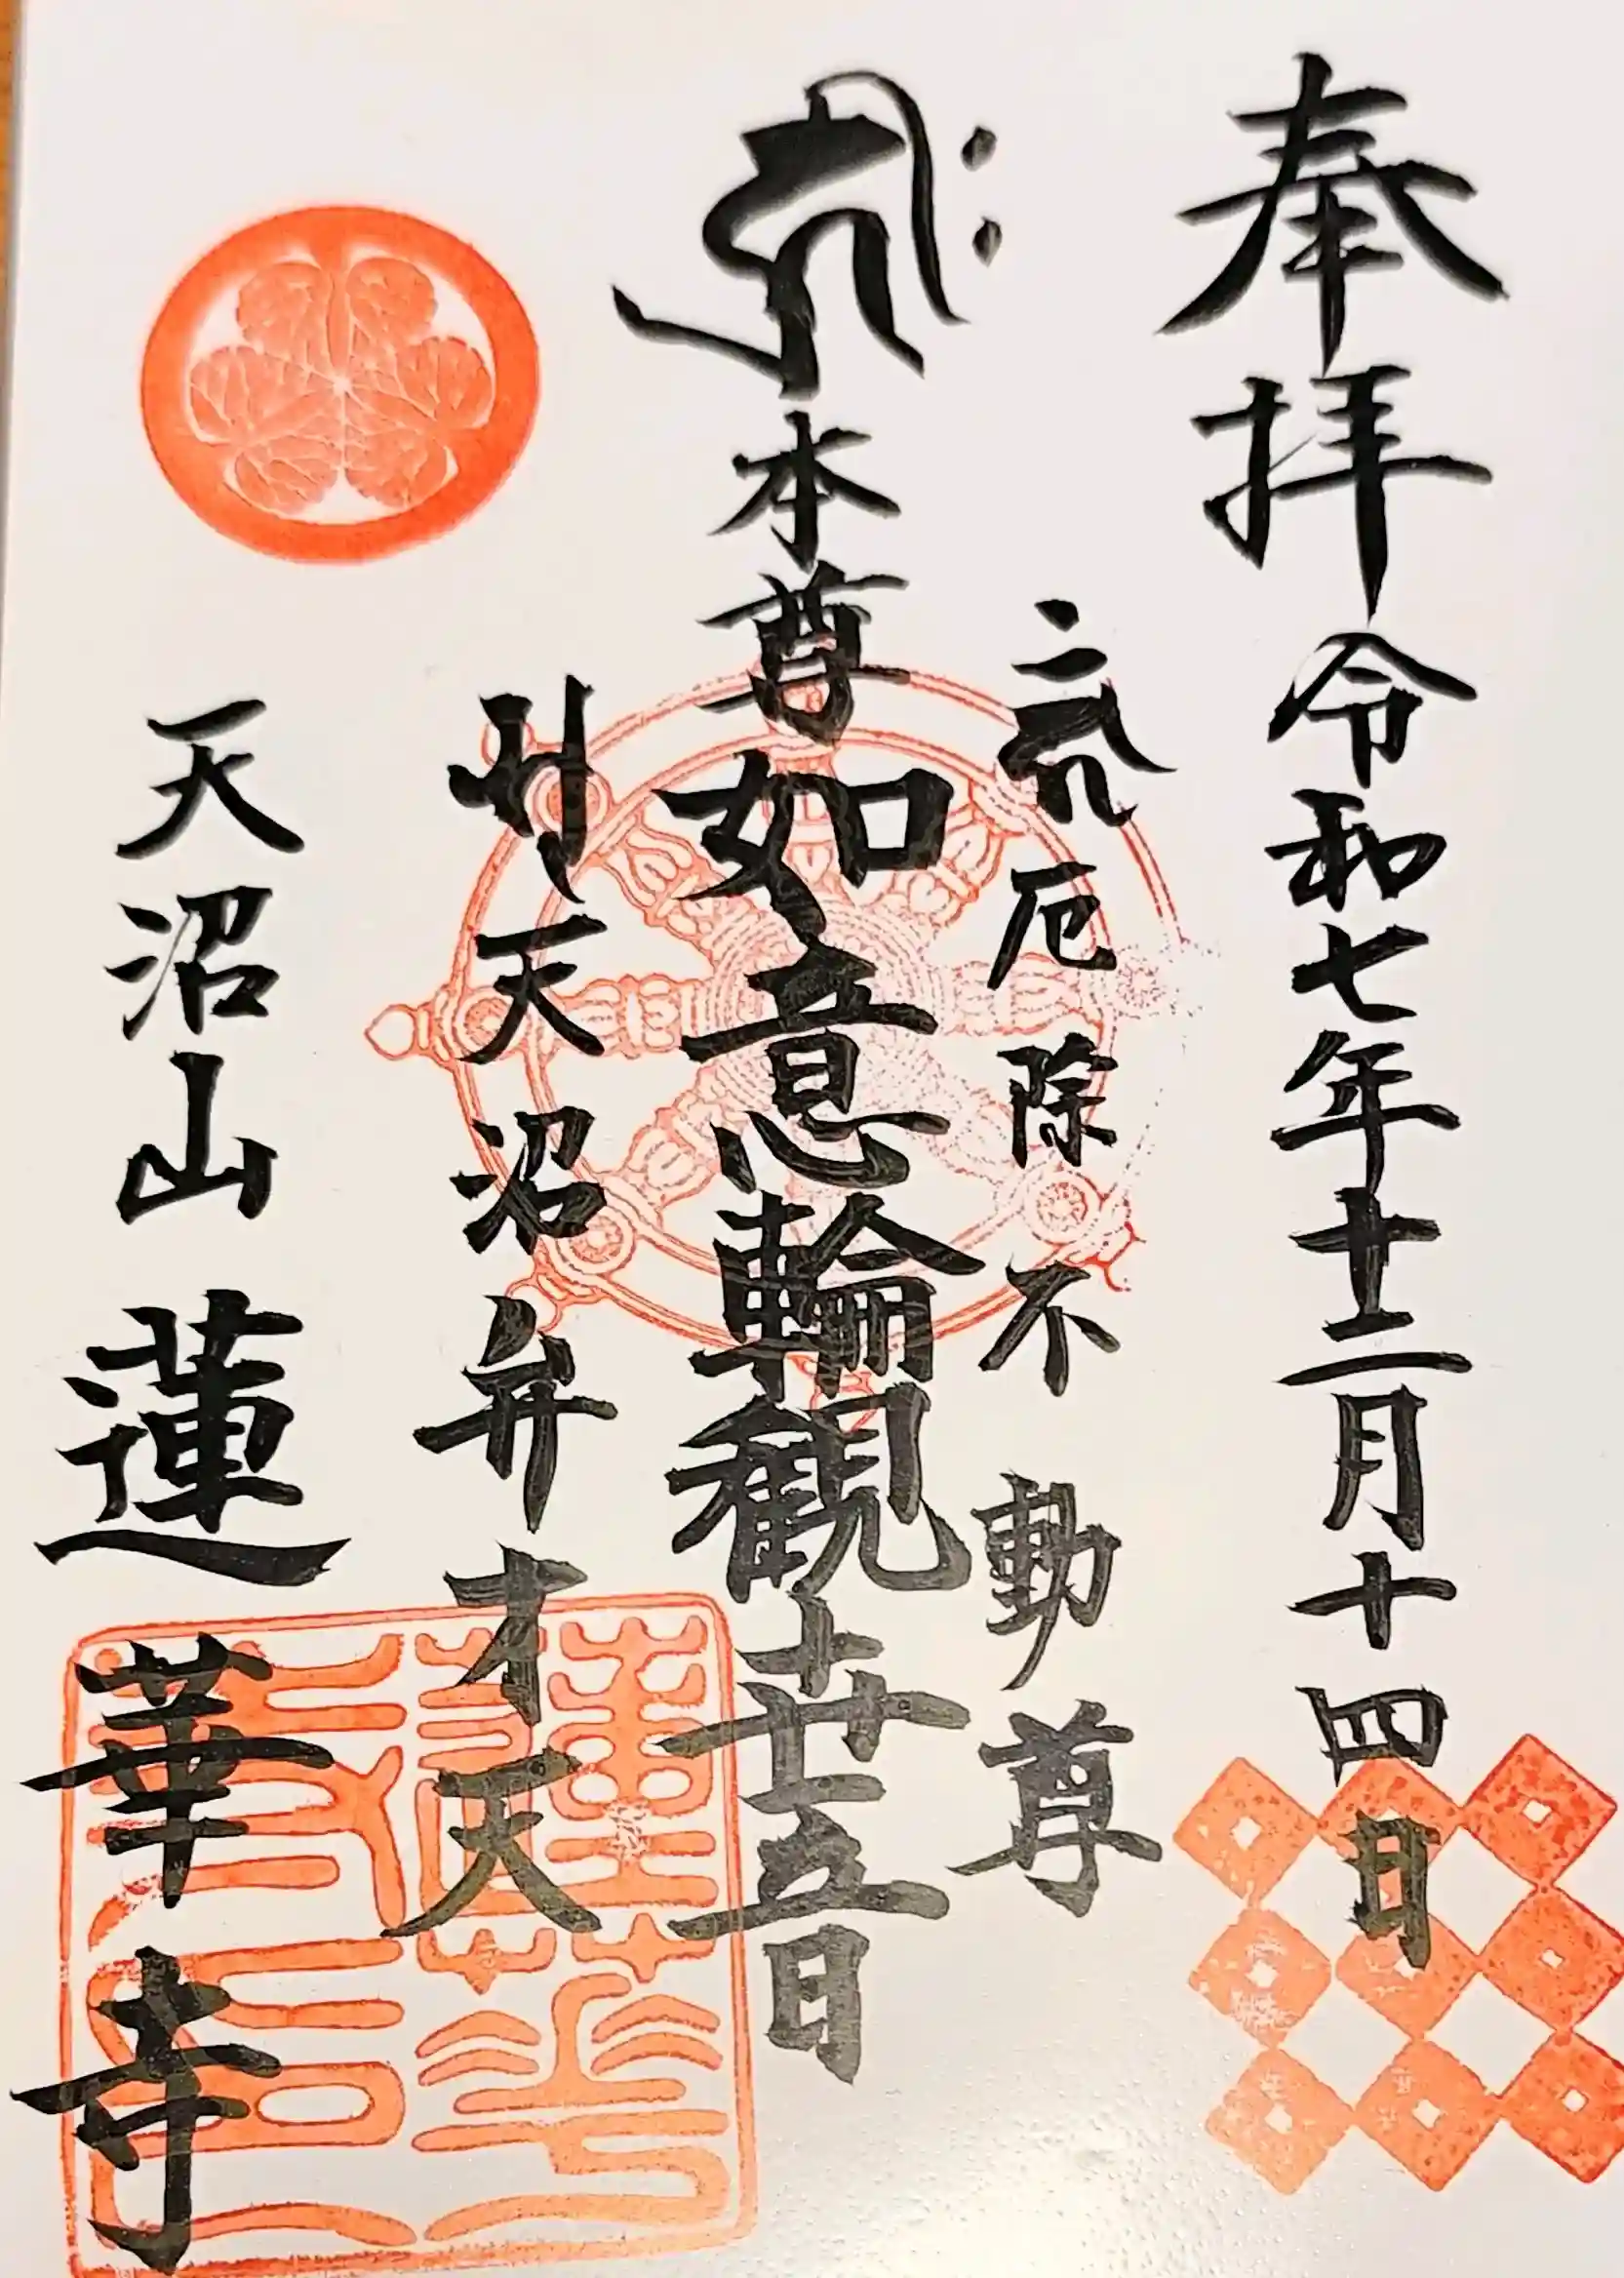 奉拝 令和七年十二月十四日
厄除不動尊
本尊如意輪観世音
天沼弁才天
天沼山 蓮華寺